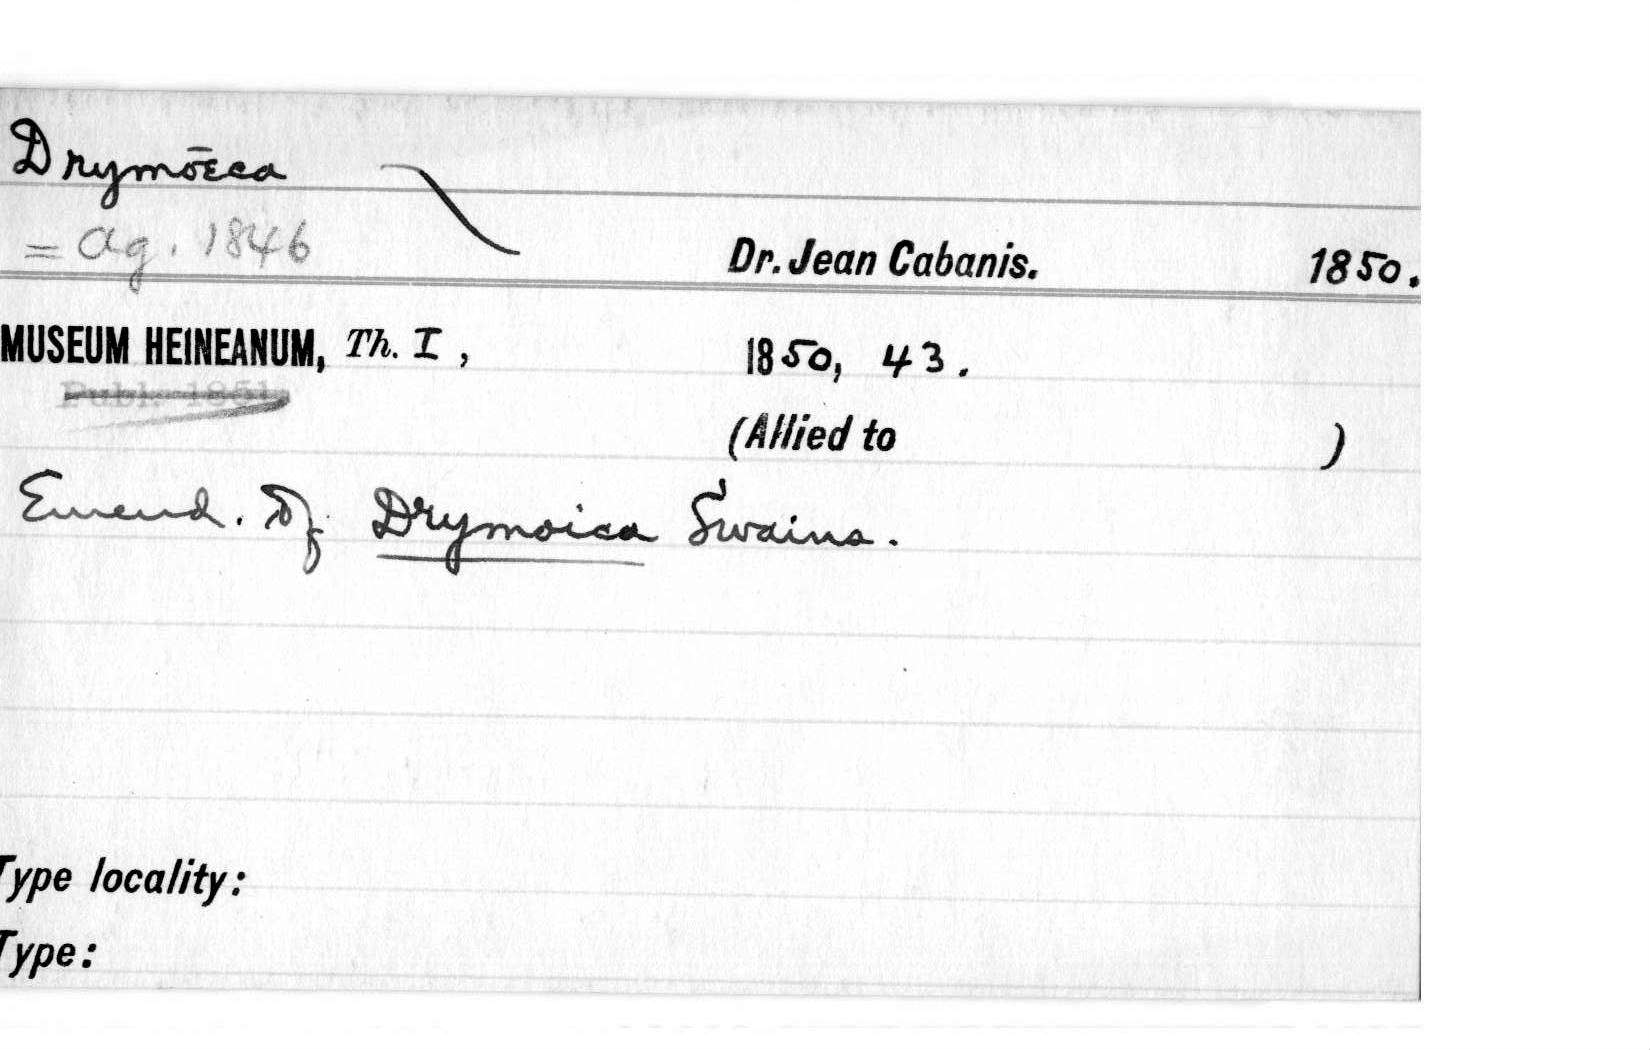 Drymōeca
= Ag. 1846
Dr. Jean Cabanis. 1850.
MUSEUM HEINEANUM, Th. I, 1850, 43.
Publ. 1851
(Allied to )
Emend. of Drymoica Swains.
Type locality:
Type: